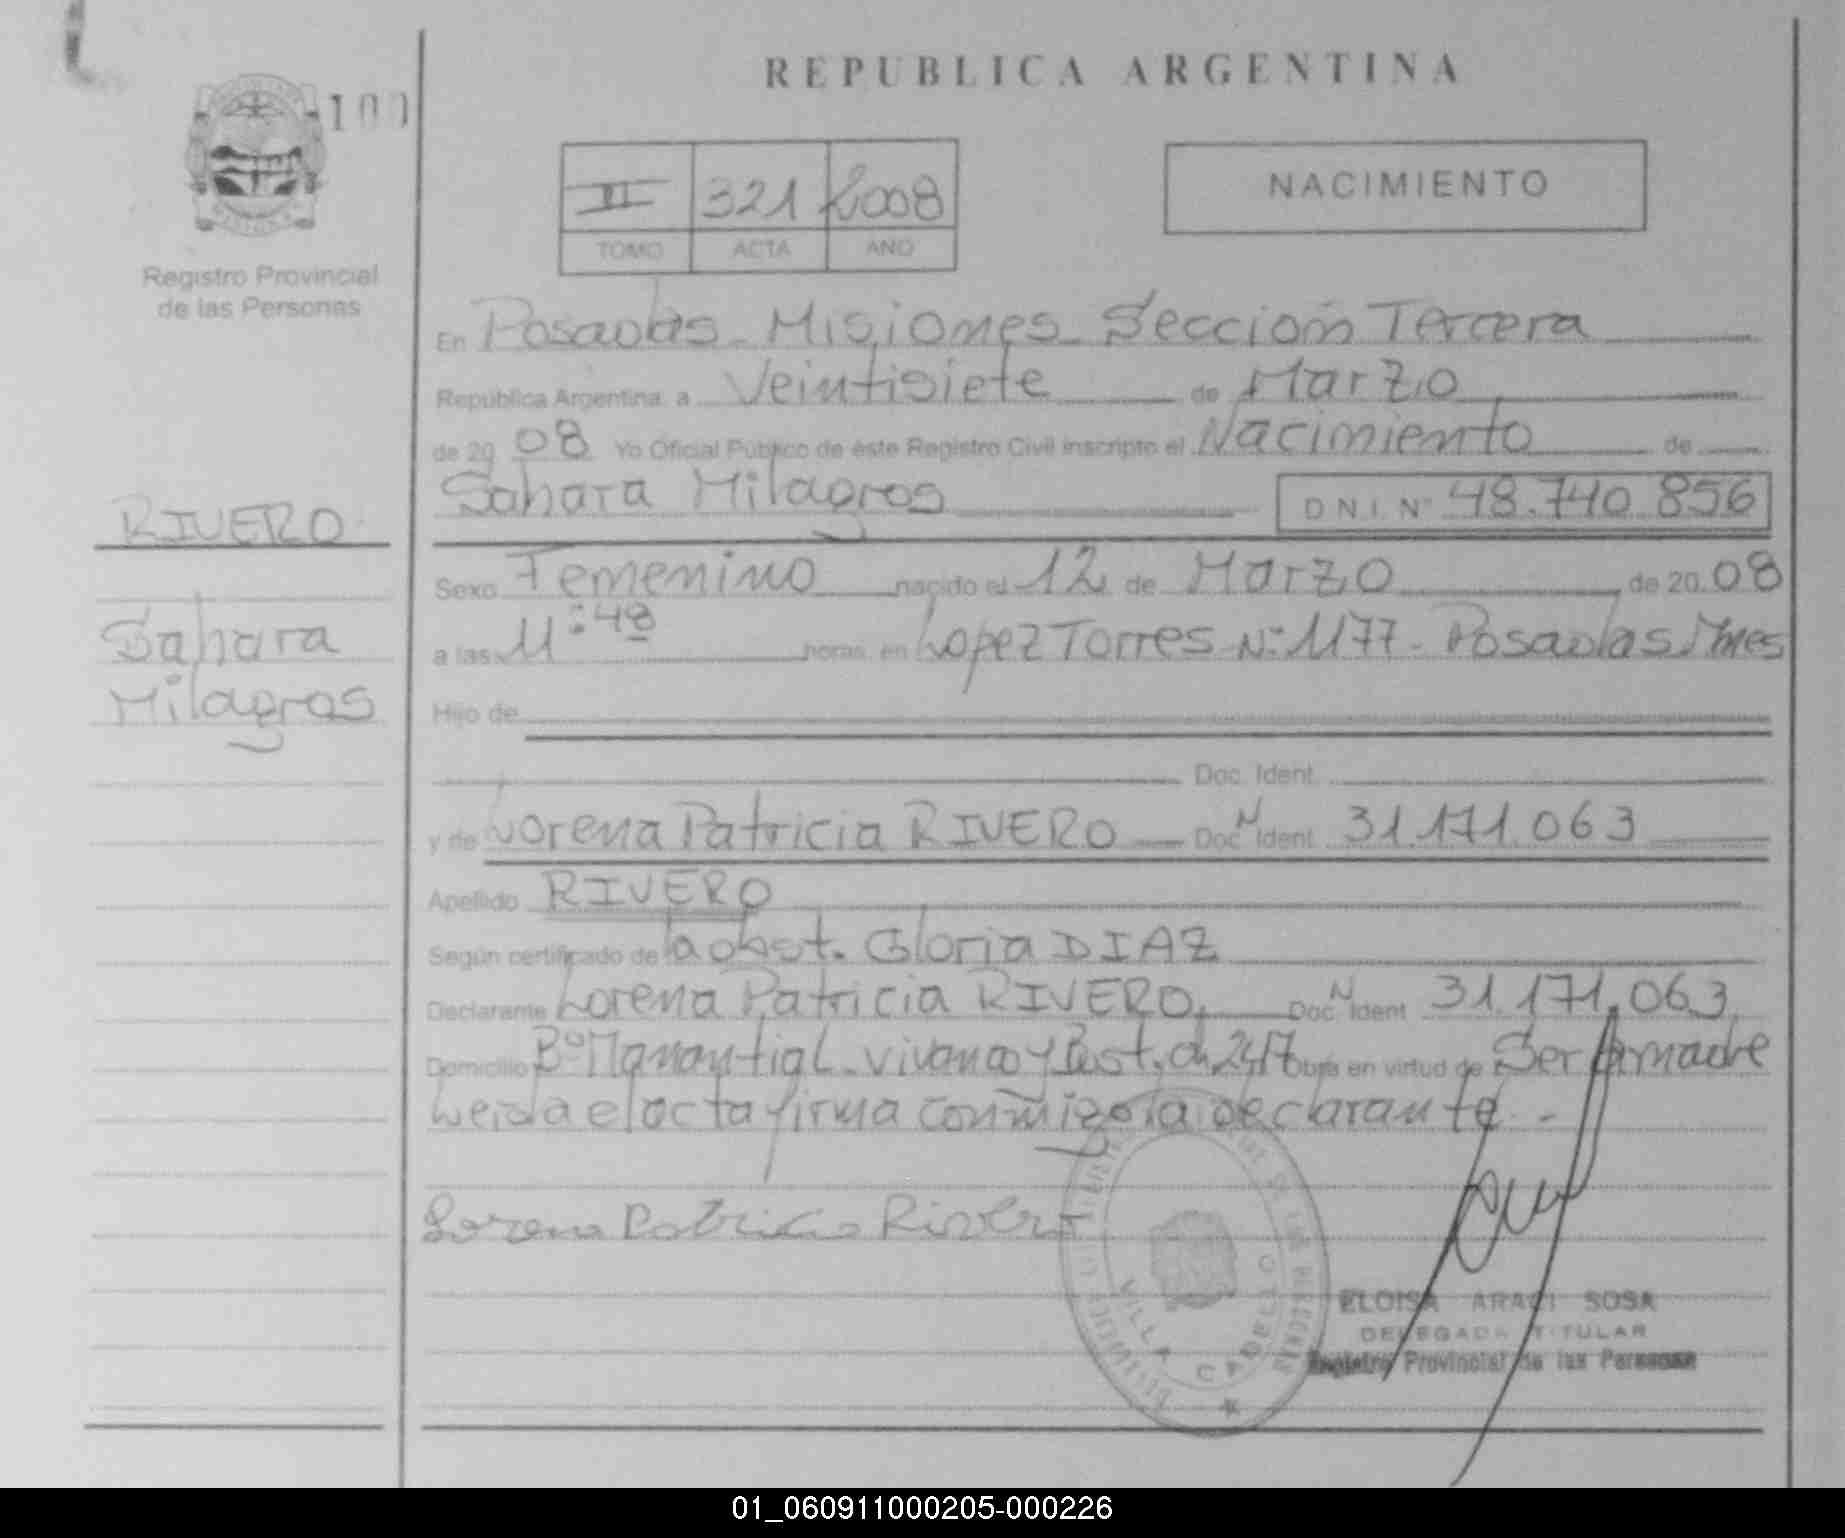 REPUBLICA ARGENTINA
100
II 321 2008
TOMO ACTA AÑO
NACIMIENTO
Registro Provincial
de las Personas
En Posadas - Misiones Sección Tercera
República Argentina a Veintisiete de Marzo
de 2008 Yo Oficial Público de éste Registro Civil inscripto el Nacimiento de
Sahara Milagros D.N.I. Nº 48.740.856
RIVERO
Sexo Femenino nacido el 12 de Marzo de 2008
Sahara
a las 11:48 horas en Lopez Torres Nº 1177 - Posadas Mnes
Milagros
Hijo de
Doc. Ident.
y de Lorena Patricia RIVERO Doc. N Ident. 31.171.063
Apellido RIVERO
Según certificado de la obst. Gloria DIAZ
Declarante Lorena Patricia RIVERO. Doc. N Ident. 31.171.063
Domicilio Bº Manantial - Vivanco y ch. 247 Obra en virtud de Ser la madre
Leida el acta firma conmigo la declarante. -
Lorena Patricia Rivero
VILLA CABELLO
ELOISA ARACI SOSA
DELEGADA TITULAR
Registro Provincial de las Personas
01_060911000205-000226